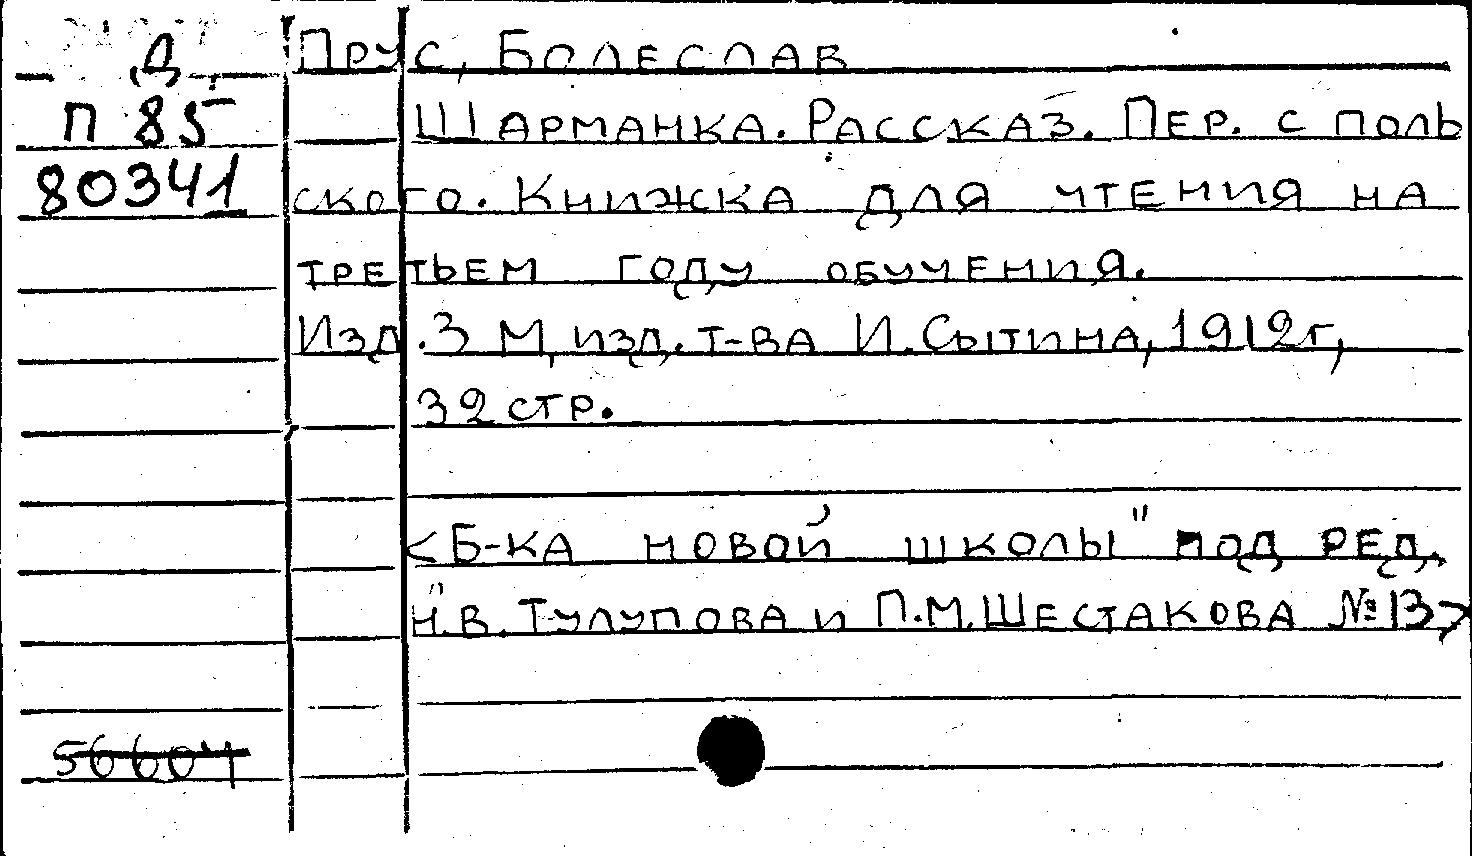 Д
П 85
80341
Прус, Болеслав
Шарманка. Рассказ. Пер. с поль
ского. Книжка для чтения на
третьем году обучения.
Изд. 3 М, изд. т-ва И. Сытина, 1912г,
32 стр.
<Б-ка новой школы" под ред.
Н.В. Тулупова и П.М. Шестакова №13>
56604